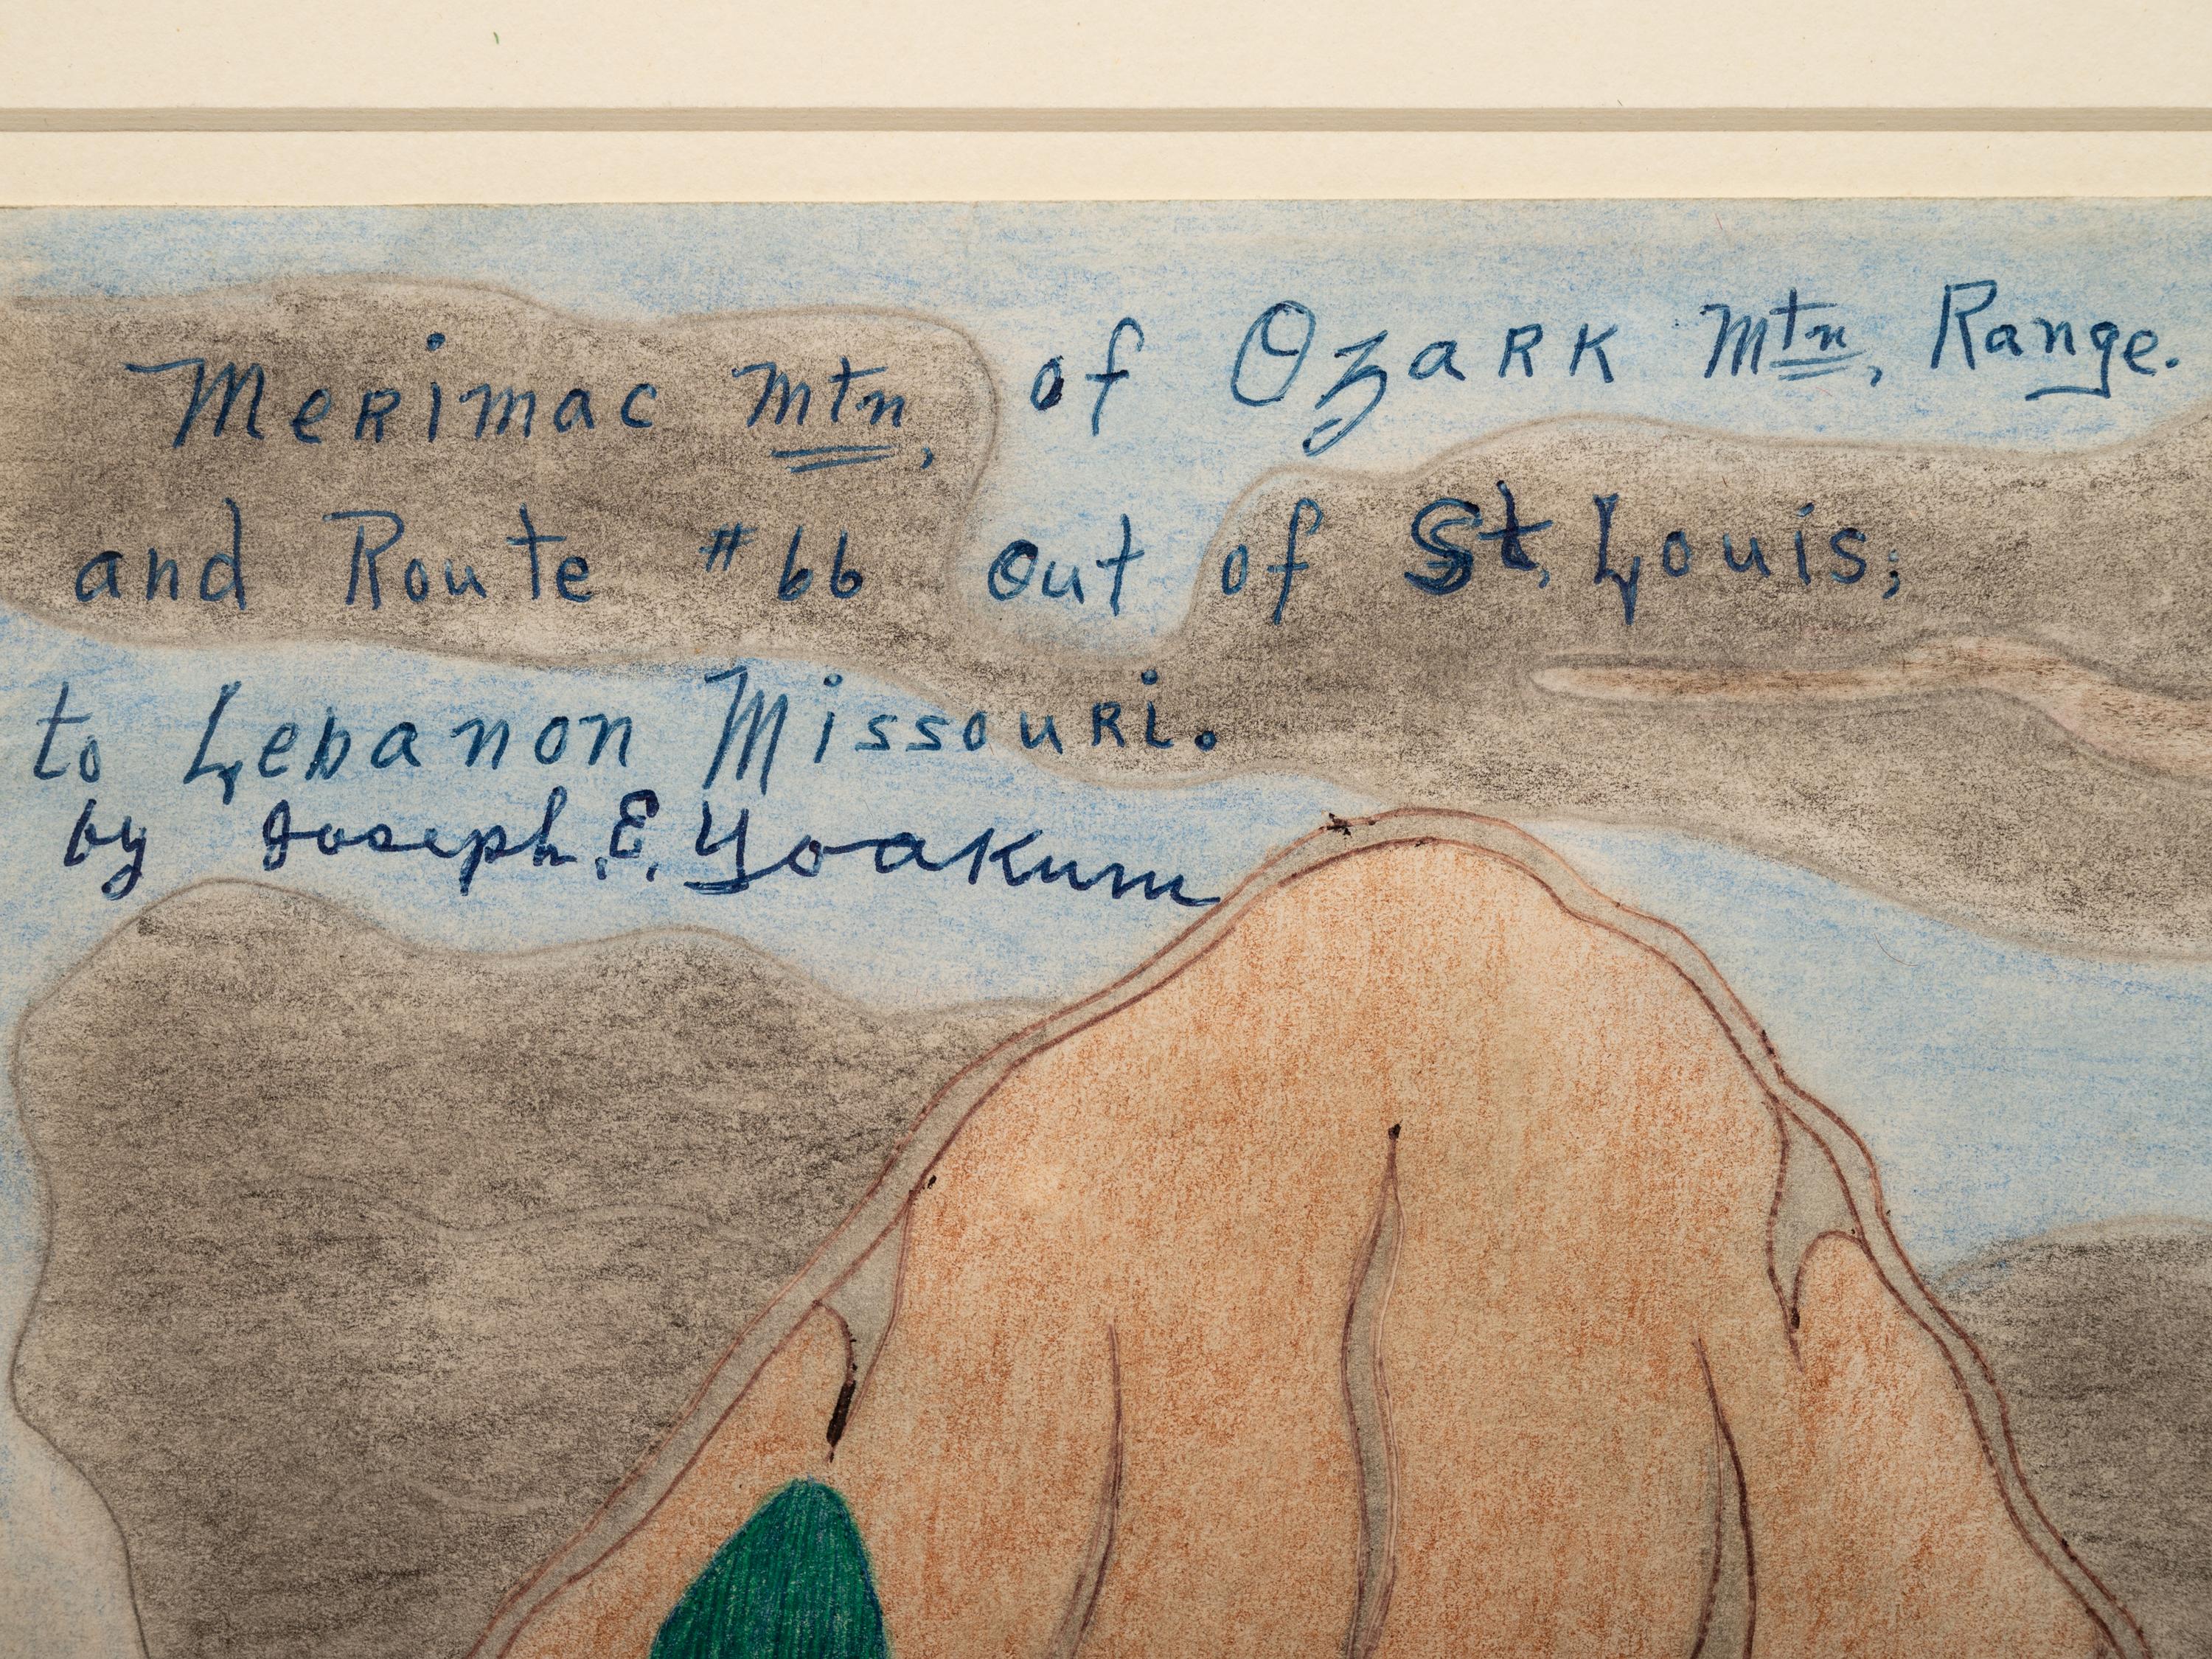 Merimac Mtn, of Ozark Mtn, Range.
and Route #66 out of St. Louis;
to Lebanon Missouri.
by Joseph. E. Yoakum